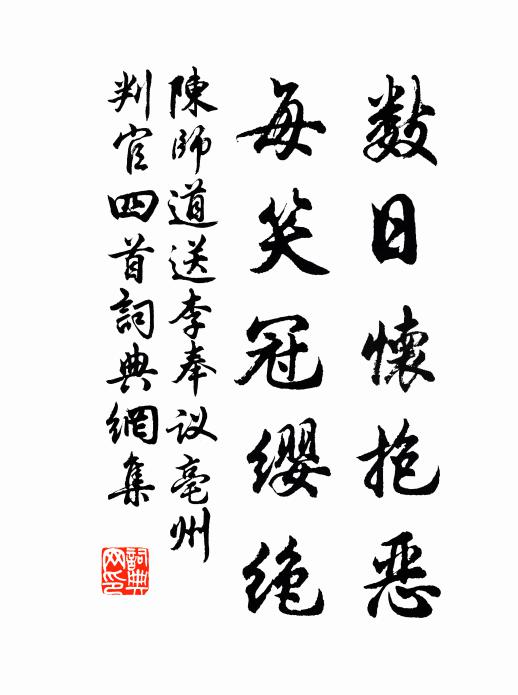 数日懷抱恶
每笑冠缨绝
陳師道送李奉议亳州
判官四首詞典網集
詞典
网印